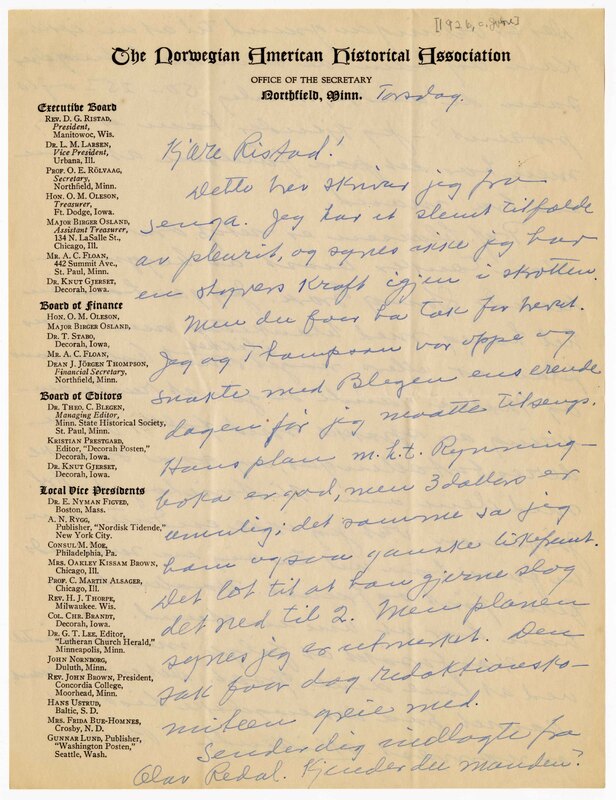 [1926, c. June]
The Norwegian American Historical Association
OFFICE OF THE SECRETARY
Northfield, Minn. Torsdag.
Executive Board
REV. D. G. RISTAD,
President,
Manitowoc, Wis.
DR. L. M. LARSEN,
Vice President,
Urbana, Ill.
PROF. O. E. RÖLVAAG,
Secretary,
Northfield, Minn.
HON. O. M. OLESON,
Treasurer,
Ft. Dodge, Iowa.
MAJOR BIRGER OSLAND,
Assistant Treasurer,
134 N. LaSalle St.,
Chicago, Ill.
MR. A. C. FLOAN,
442 Summit Ave.,
St. Paul, Minn.
DR. KNUT GJERSET,
Decorah, Iowa.
Board of Finance
HON. O. M. OLESON,
MAJOR BIRGER OSLAND,
DR. T. STABO,
Decorah, Iowa.
MR. A. C. FLOAN,
DEAN J. JÖRGEN THOMPSON,
Financial Secretary,
Northfield, Minn.
Board of Editors
DR. THEO. C. BLEGEN,
Managing Editor,
Minn. State Historical Society,
St. Paul, Minn.
KRISTIAN PRESTGARD,
Editor, "Decorah Posten,"
Decorah, Iowa.
DR. KNUT GJERSET,
Decorah, Iowa.
Local Vice Presidents
DR. E. NYMAN FIGVED,
Boston, Mass.
A. N. RYGG,
Publisher, "Nordisk Tidende,"
New York City.
CONSUL M. MOE,
Philadelphia, Pa.
MRS. OAKLEY KISSAM BROWN,
Chicago, Ill.
PROF. C. MARTIN ALSAGER,
Chicago, Ill.
REV. H. J. THORPE,
Milwaukee. Wis.
COL. CHR. BRANDT,
Decorah, Iowa.
DR. G. T. LEE, Editor,
"Lutheran Church Herald,"
Minneapolis, Minn.
JOHN NORNBORG,
Duluth, Minn.
REV. JOHN BROWN, President,
Concordia College,
Moorhead, Minn.
HANS USTRUD,
Baltic, S. D.
MRS. FRIDA BUE-HOMNES,
Crosby, N. D.
GUNNAR LUND, Publisher,
"Washington Posten,"
Seattle, Wash.
Kjære Ristad!
Dette brev skriver jeg fra
senga. Jeg har et slemt tilfælde
av pleurit, og synes ikke jeg har
en styvers kraft igjen i skrotten.
Men du faar ha tak for brevet.
Jeg og Thompson var oppe og
snakte med Blegen ens ærende
dagen før jeg maatte tilsengs.
Hans plan m.h.t. Rynning-
boka er god, men 3 dollars er
umulig; det samme sa jeg
ham ogsaa ganske likefremt.
Det lot til at han gjerne slog
det ned til 2. Men planen
synes jeg er utmerket. Den
sak faar dog redaktionsko-
miteen greie med.
Sender dig indlagte fra
Olav Redal. Kjender du manden?